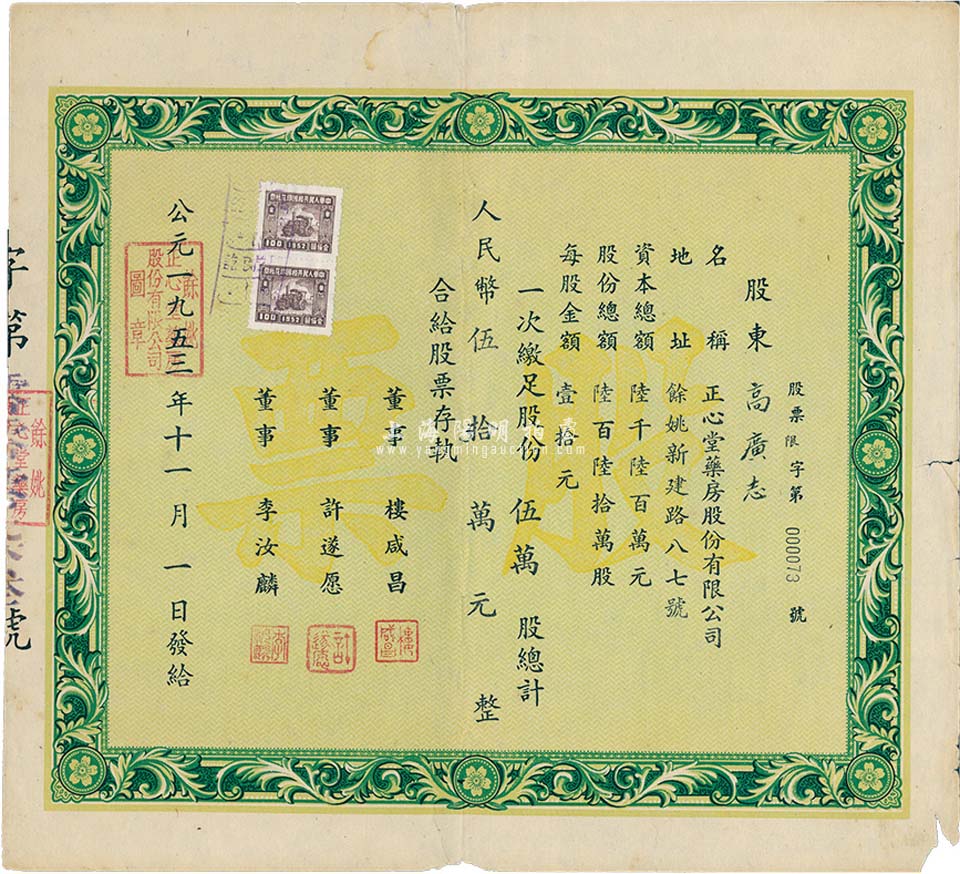 股票限字第000073號
股東 高廣志
名稱 正心堂藥房股份有限公司
地址 餘姚新建路八七號
資本總額 陸千陸百萬元
股份總額 陸百陸拾萬股
每股金額 壹拾元
一次繳足股份 伍萬 股總計
人民幣伍拾萬元整
合給股票存執
董事 樓咸昌
董事 許遂愿
董事 李汝麟
公元一九五三年十一月一日發給
股票
中華人民共和國印花稅票
100 1952
中華人民共和國印花稅票
100 1952
餘姚正心堂藥房股份有限公司圖章
字第
號
上海陽明拍賣
www.yangmingauction.com